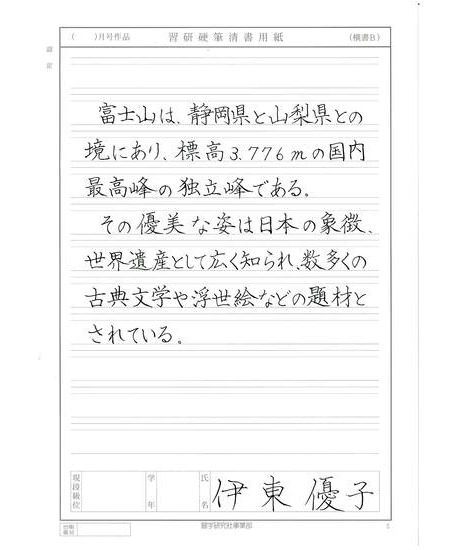 (　)月号作品　習研硬筆清書用紙　(横書B)
富士山は、静岡県と山梨県との
境にあり、標高3.776mの国内
最高峰の独立峰である。
その優美な姿は日本の象徴、
世界遺産として広く知られ、数多くの
古典文学や浮世絵などの題材と
されている。
現段級位　学年　氏名　伊東優子